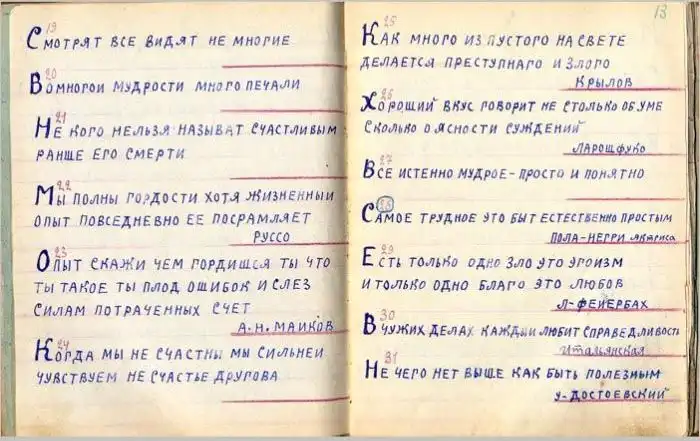 19
СМОТРЯТ ВСЕ ВИДЯТ НЕ МНОГИЕ
20
ВО МНОГОИ МУДРОСТИ МНОГО ПЕЧАЛИ
21
НЕ КОГО НЕЛЬЗЯ НАЗЫВАТ СЧАСТЛИВЫМ
РАНЩЕ ЕГО СМЕРТИ
22
МЫ ПОЛНЫ ГОРДОСТИ ХОТЯ ЖИЗНЕННЫИ
ОПЫТ ПОВСЕДНЕВНО ЕЕ ПОСРАМЛЯЕТ
РУССО
23
ОПЫТ СКАЖИ ЧЕМ ГОРДИШСЯ ТЫ ЧТО
ТЫ ТАКОЕ ТЫ ПЛОД ОШИБОК И СЛЕЗ
СИЛАМ ПОТРАЧЕННЫХ СЧЕТ
А.Н. МАИКОВ
24
КОГДА МЫ НЕ СЧАСТНЫ МЫ СИЛЬНЕИ
ЧУВСТВУЕМ НЕ СЧАСТЬЕ ДРУГОВА
13
25
КАК МНОГО ИЗ ПУСТОГО НА СВЕТЕ
ДЕЛАЕТСЯ ПРЕСТУПНАГО И ЗЛОГО
КРЫЛОВ
26
ХОРОШИЙ ВКУС ГОВОРИТ НЕ СТОЛЬКО ОБ УМЕ
СКОЛЬКО О ЯСНОСТИ СУЖДЕНИЙ
ЛАРОШФУКО
27
ВСЕ ИСТЕННО МУДРОЕ - ПРОСТО И ПОНЯТНО
28
САМОЕ ТРУДНОЕ ЭТО БЫТ ЕСТЕСТВЕННО ПРОСТЫМ
ПОЛА-НЕГРИ АКТРИСА
29
ЕСТЬ ТОЛЬКО ОДНО ЗЛО ЭТО ЭГОИЗМ
И ТОЛЬКО ОДНО БЛАГО ЭТО ЛЮБОВ
Л-ФЕЙЕРБАХ
30
В ЧУЖИХ ДЕЛАХ КАЖДЫИ ЛЮБИТ СПРАВЕДЛИВОСТЬ
ИТАЛЬЯНСКАЯ
31
НЕ ЧЕГО НЕТ ВЫШЕ КАК БЫТЬ ПОЛЕЗНЫМ
У-ДОСТОЕВСКИЙ